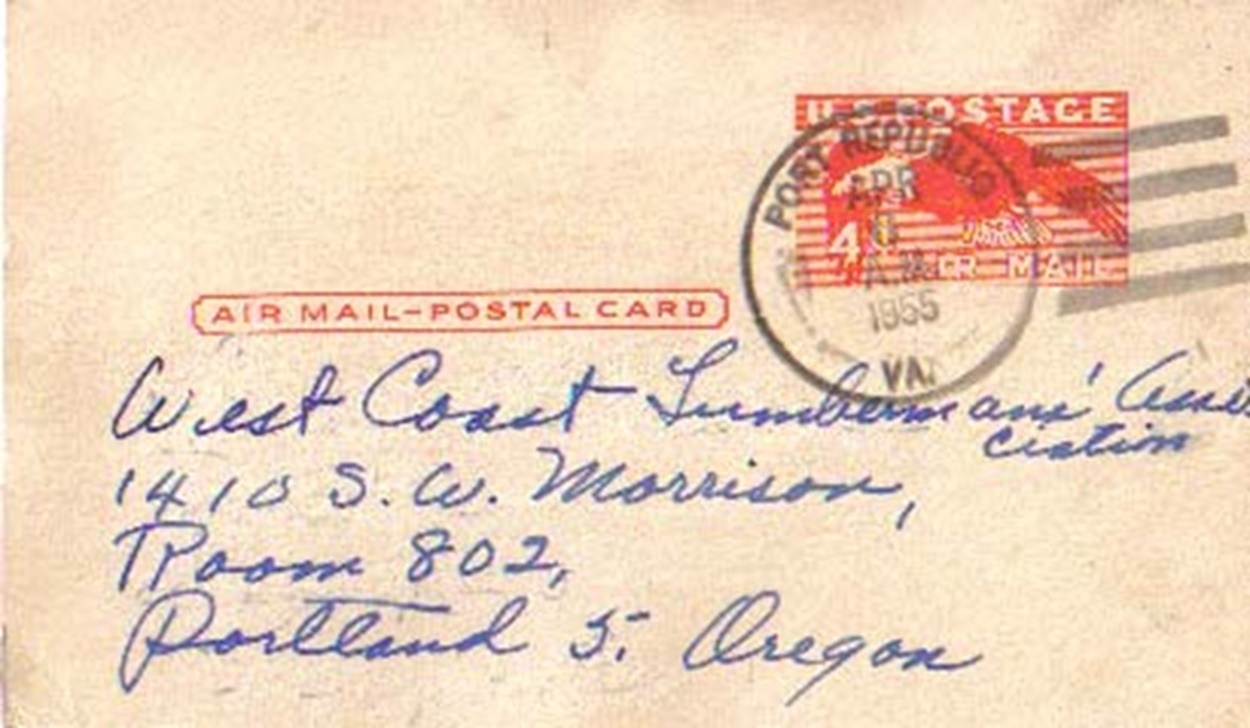 U.S. POSTAGE
PORT REPUBLIC
APR
A.M.
1955
VA.
4¢
AIR MAIL
AIR MAIL–POSTAL CARD
West Coast Lumbermans' Asso
ciation
1410 S. W. Morrison,
Room 802,
Portland 5, Oregon